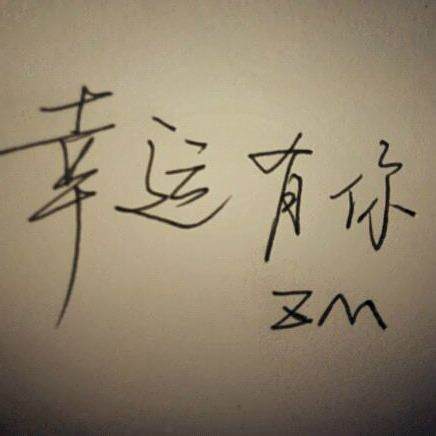 幸运有你
zm